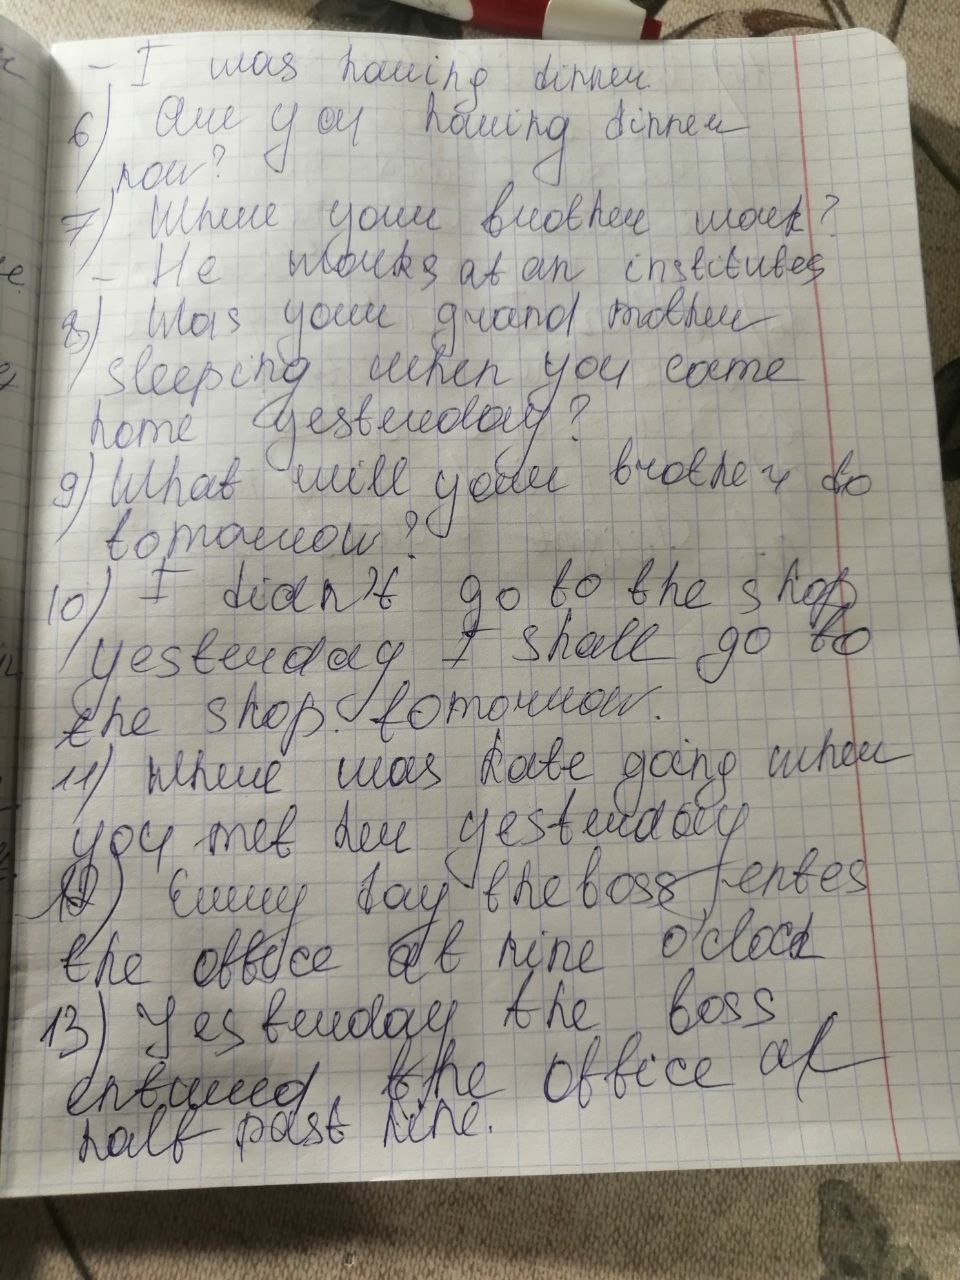 - I was having dinner.
6) Are you having dinner
now?
7) Where your brother work?
- He works at an institutes
8) Was your grand mother
sleeping when you came
home yesterday?
9) What will your brother do
tomorrow?
10) I didn't go to the shop
yesterday I shall go to
the shop. tomorrow.
11) Where was Kate going when
you met her yesterday
12) Every day the boss entes
the office at nine o'clock
13) Yesterday the boss
entered the office at
half past nine.